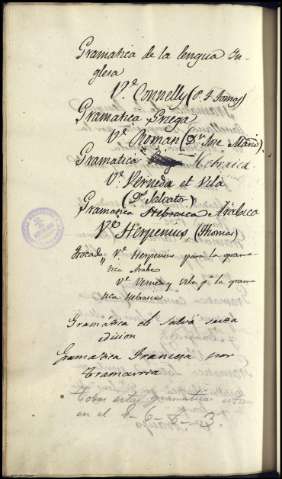 Gramatica de la lengua In-
glesa
Vº Connelly (P. F. Tomas)
Gramatica Griega
Vº Roman (Dn Jose Maria)
Gramatica Hebraica
Vº Verneda et Vila
(Dn Salvator)
Gramatica Hebraica Arabaco
Vº Herpenius (Thomas)
Trocado, Vº Herpenius para la grama-
tica Arabe
Vº Verneda y Vila pª la gra-
matica hebraica
Gramática de Salvá
edicion
Gramatica Francesa por
Tramarria
Todas estas gramaticas
en el